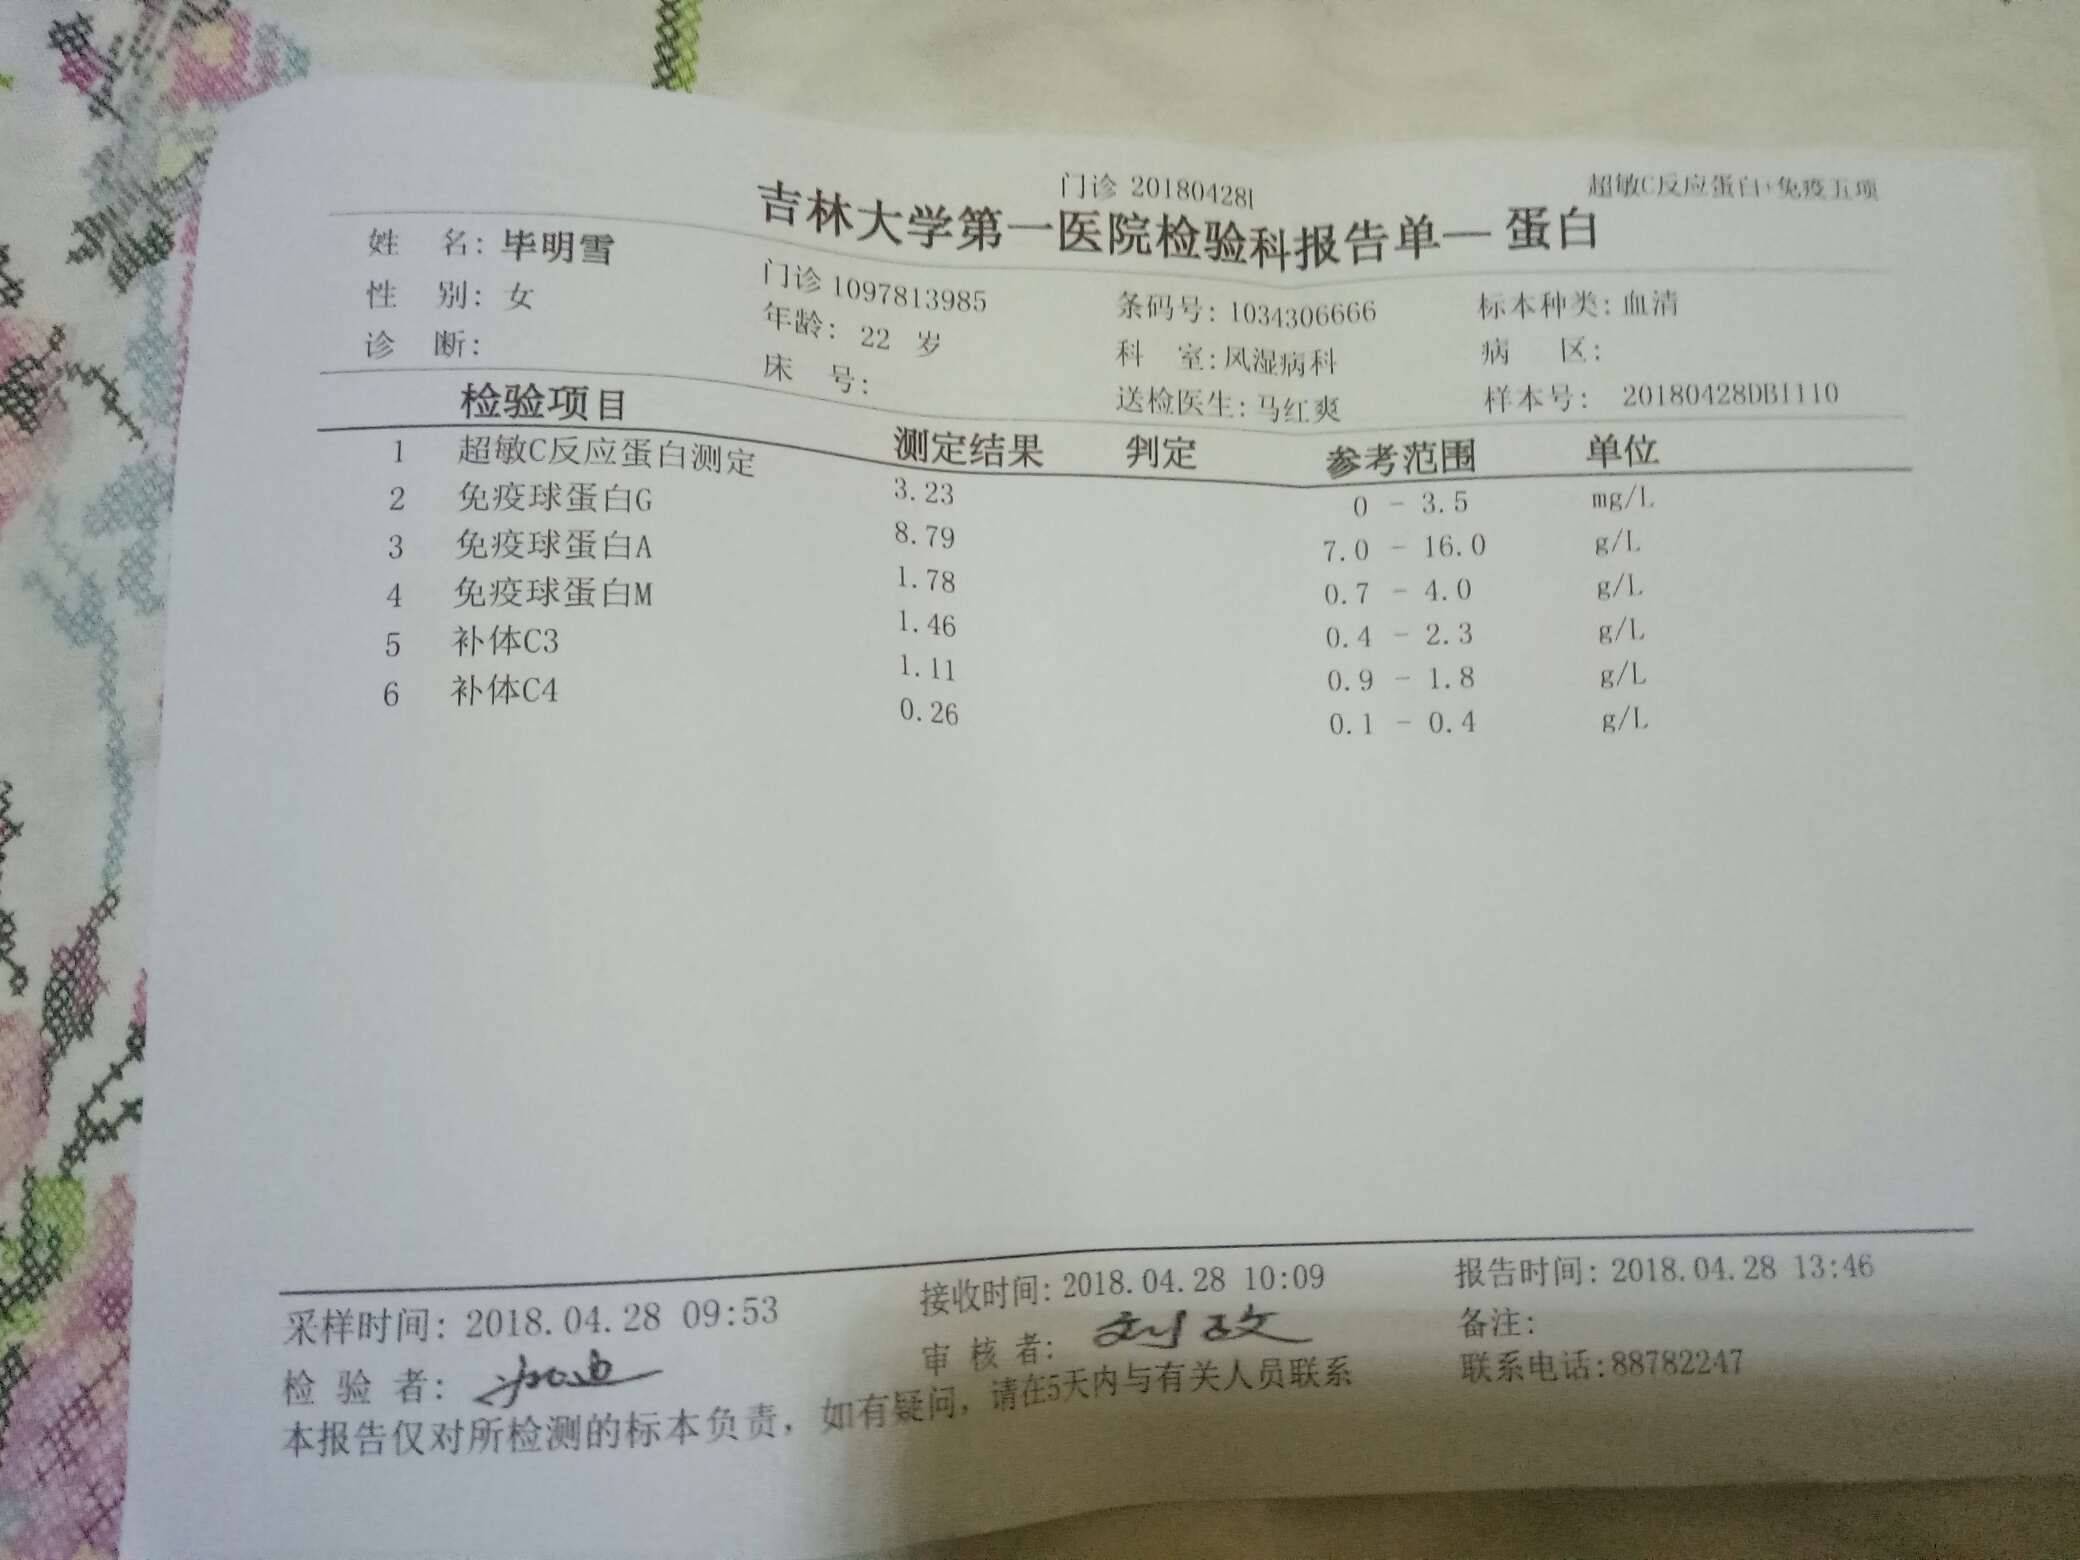 门诊 20180428 超敏C反应蛋白+免疫五项
吉林大学第一医院检验科报告单—蛋白
姓 名: 毕明雪 门诊 1097813985 条码号: 1034306666 标本种类: 血清
性 别: 女 年龄: 22 岁 科 室: 风湿病科 病 区:
诊 断: 床 号: 送检医生: 马红爽 样本号: 20180428DB1110
检验项目 测定结果 判定 参考范围 单位
1 超敏C反应蛋白测定 3.23 0 - 3.5 mg/L
2 免疫球蛋白G 8.79 7.0 - 16.0 g/L
3 免疫球蛋白A 1.78 0.7 - 4.0 g/L
4 免疫球蛋白M 1.46 0.4 - 2.3 g/L
5 补体C3 1.11 0.9 - 1.8 g/L
6 补体C4 0.26 0.1 - 0.4 g/L
采样时间: 2018.04.28 09:53 接收时间: 2018.04.28 10:09 报告时间: 2018.04.28 13:46
检 验 者: 审 核 者: 刘政 备注:
本报告仅对所检测的标本负责，如有疑问，请在5天内与有关人员联系 联系电话:88782247